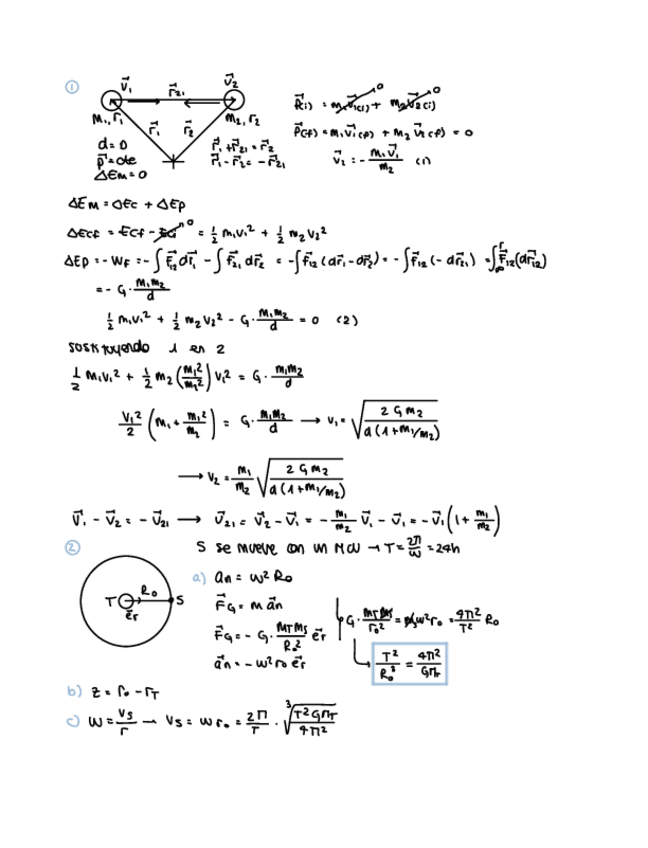 ①
v⃗₁ r⃗₂₁ v⃗₂
m₁, r₁ r⃗₁ r⃗₂ m₂, r₂
d = 0
p⃗ = cte
ΔEm = 0
r⃗₁ + r⃗₂₁ = r⃗₂
r⃗₁ - r⃗₂ = - r⃗₂₁
P⃗(i) = m₁v⃗₁(i) + m₂v⃗₂(i) 0 0
P⃗(f) = m₁v⃗₁(f) + m₂v⃗₂(f) = 0
v⃗₂ = - m₁v⃗₁/m₂ (1)
ΔEm = ΔEc + ΔEp
ΔEcf = Ecf - Eci 0 = 1/2 m₁v₁² + 1/2 m₂v₂²
ΔEp = - WF = - ∫ F⃗₁₂ dr⃗₁ - ∫ f⃗₂₁ dr⃗₂ = - ∫ f⃗₁₂ (dr⃗₁ - dr⃗₂) = - ∫ f⃗₁₂ (- dr⃗₂₁) = ∫ F⃗₁₂ (dr⃗₁₂)
= - G · m₁m₂/d
1/2 m₁v₁² + 1/2 m₂v₂² - G · m₁m₂/d = 0 (2)
sostituyendo 1 en 2
1/2 m₁v₁² + 1/2 m₂ (m₁²/m₂²) v₁² = G · m₁m₂/d
v₁²/2 (m₁ + m₁²/m₂) = G · m₁m₂/d → v₁ = √(2Gm₂/d(1+m₁/m₂))
→ v₂ = m₁/m₂ √(2Gm₂/d(1+m₁/m₂))
v⃗₁ - v⃗₂ = - v⃗₂₁ → v⃗₂₁ = v⃗₂ - v⃗₁ = - m₁/m₂ v⃗₁ - v⃗₁ = - v⃗₁ (1 + m₁/m₂)
② S se mueve con un MCU → T = 2π/ω = 24h
T R₀ S
e⃗r
a) an = ω² R₀
F⃗G = m a⃗n
F⃗G = - G · MTMS/R₀² e⃗r
a⃗n = - ω² r₀ e⃗r
G · MTMS/r₀² = MSω²r₀ = 4π²/T² R₀
T²/R₀³ = 4π²/GMT
b) z = r₀ - rT
c) ω = vS/r → vS = ωr₀ = 2π/T · ³√(T²GMT/4π²)